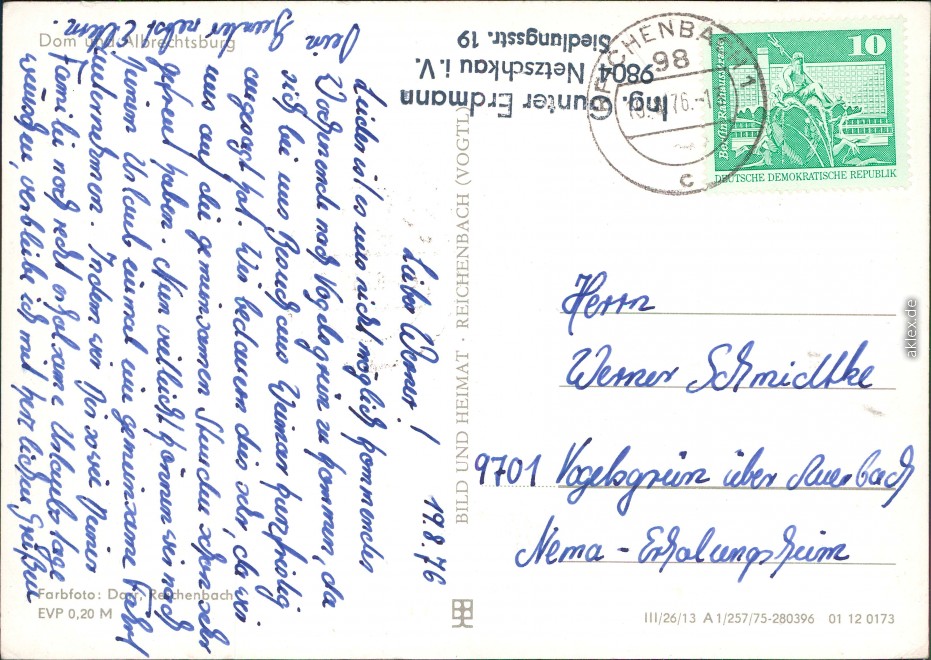 Dom und Albrechtsburg
19.8.76
Lieber Werner!
Leider ist es uns nicht möglich kommendes
Wochenende nach Vogelsgrün zu kommen, da
sich bei uns Besuch aus Weimar kurzfristig
angesagt hat. Wir bedauern dies sehr, da wir
uns auf die gemeinsamen Stunden schon sehr
gefreut haben. Nun vielleicht können wir noch
in Deinem Urlaub einmal eine gemeinsame Fahrt
unternehmen. Indem wir Dir sowie Deiner
Familie noch recht erholsame Urlaubstage
wünschen, verbleibe ich mit herzlichen Grüßen
Dein
Gunter nebst Eltern.
Farbfoto: Darr, Reichenbach
EVP 0,20 M
BILD UND HEIMAT · REICHENBACH (VOGTL)
Ing. Gunter Erdmann
9804 Netzschkau i.V.
Siedlungsstr. 19
REICHENBACH 1
98
76.-1
c
10
Berlin, Rathausstrasse
DEUTSCHE DEMOKRATISCHE REPUBLIK
Herrn
Werner Schmidtke
9701 Vogelsgrün über Auerbach
Nema-Erholungsheim
III/26/13 A 1/257/75-280396 01 12 0173
aklex.de